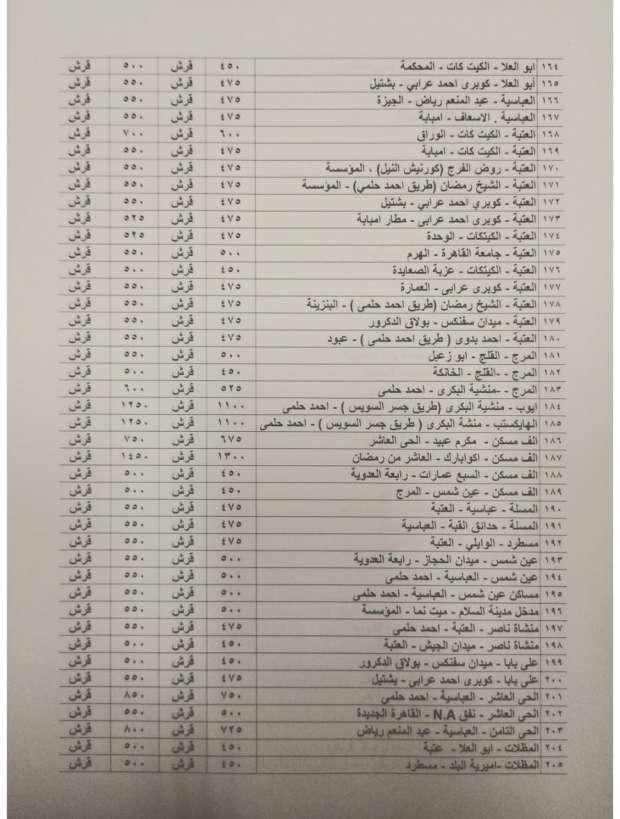 ١٦٤ ابو العلا - الكيت كات - المحكمة ٤٥٠ قرش ٥٠٠ قرش
١٦٥ أبو العلا - كوبرى احمد عرابي - بشتيل ٤٧٥ قرش ٥٥٠ قرش
١٦٦ العباسية - عبد المنعم رياض - الجيزة ٤٧٥ قرش ٥٥٠ قرش
١٦٧ العباسية . الاسعاف - امبابة ٤٧٥ قرش ٥٥٠ قرش
١٦٨ العتبة - الكيت كات - الوراق ٦٠٠ قرش ٧٠٠ قرش
١٦٩ العتبة - الكيت كات - امبابة ٤٧٥ قرش ٥٥٠ قرش
١٧٠ العتبة - روض الفرج (كورنيش النيل) ، المؤسسة ٤٧٥ قرش ٥٥٠ قرش
١٧١ العتبة - الشيخ رمضان (طريق احمد حلمي) - المؤسسة ٤٧٥ قرش ٥٥٠ قرش
١٧٢ العتبة - كوبري احمد عرابي - بشتيل ٤٧٥ قرش ٥٥٠ قرش
١٧٣ العتبة - كوبرى احمد عرابى - مطار امبابة ٤٧٥ قرش ٥٢٥ قرش
١٧٤ العتبة - الكيتكات - الوحدة ٤٧٥ قرش ٥٢٥ قرش
١٧٥ العتبة - جامعة القاهرة - الهرم ٥٠٠ قرش ٥٥٠ قرش
١٧٦ العتبة - الكيتكات - عزبة الصعايدة ٤٥٠ قرش ٥٠٠ قرش
١٧٧ العتبة - كوبرى عرابى - العمارة ٤٧٥ قرش ٥٥٠ قرش
١٧٨ العتبة - الشيخ رمضان (طريق احمد حلمى ) - البنزينة ٤٧٥ قرش ٥٥٠ قرش
١٧٩ العتبة - ميدان سفنكس - بولاق الدكرور ٤٧٥ قرش ٥٥٠ قرش
١٨٠ العتبة - احمد بدوى ( طريق احمد حلمى ) - عبود ٤٧٥ قرش ٥٥٠ قرش
١٨١ المرج - القلج - ابو زعبل ٥٠٠ قرش ٥٥٠ قرش
١٨٢ المرج - -القلج - الخانكة ٤٥٠ قرش ٥٠٠ قرش
١٨٣ المرج - -منشية البكرى - احمد حلمى ٥٢٥ قرش ٦٠٠ قرش
١٨٤ ايوب - منشية البكرى (طريق جسر السويس ) - احمد حلمى ١١٠٠ قرش ١٢٥٠ قرش
١٨٥ الهايكستب - منشة البكرى ( طريق جسر السويس ) - احمد حلمى ١١٠٠ قرش ١٢٥٠ قرش
١٨٦ الف مسكن - مكرم عبيد - الحى العاشر ٦٧٥ قرش ٧٥٠ قرش
١٨٧ الف مسكن - اكوابارك - العاشر من رمضان ١٣٠٠ قرش ١٤٥٠ قرش
١٨٨ الف مسكن - السبع عمارات - رابعة العدوية ٤٥٠ قرش ٥٠٠ قرش
١٨٩ الف مسكن - عين شمس - المرج ٤٥٠ قرش ٥٠٠ قرش
١٩٠ المسلة - عباسية - العتبة ٤٧٥ قرش ٥٥٠ قرش
١٩١ المسلة - حدائق القبة - العباسية ٤٧٥ قرش ٥٥٠ قرش
١٩٢ مسطرد - الوايلي - العتبة ٤٧٥ قرش ٥٥٠ قرش
١٩٣ عين شمس - ميدان الحجاز - رابعة العدوية ٥٠٠ قرش ٥٥٠ قرش
١٩٤ عين شمس - العباسية - احمد حلمى ٥٠٠ قرش ٥٥٠ قرش
١٩٥ مساكن عين شمس - العباسية - احمد حلمي ٥٠٠ قرش ٥٥٠ قرش
١٩٦ مدخل مدينة السلام - ميت نما - المؤسسة ٥٠٠ قرش ٥٥٠ قرش
١٩٧ منشاة ناصر - العتبة - احمد حلمى ٤٧٥ قرش ٥٥٠ قرش
١٩٨ منشاة ناصر - ميدان الجيش - العتبة ٤٥٠ قرش ٥٠٠ قرش
١٩٩ على بابا - ميدان سفنكس - بولاق الدكرور ٤٥٠ قرش ٥٠٠ قرش
٢٠٠ على بابا - كوبرى احمد عرابى - بشتيل ٤٧٥ قرش ٥٥٠ قرش
٢٠١ الحى العاشر - العباسية - احمد حلمي ٧٥٠ قرش ٨٥٠ قرش
٢٠٢ الحى العاشر - نفق N.A - القاهرة الجديدة ٥٠٠ قرش ٥٥٠ قرش
٢٠٣ الحى الثامن - العباسية - عبد المنعم رياض ٧٢٥ قرش ٨٠٠ قرش
٢٠٤ المظلات - ابو العلا - عتبة ٤٥٠ قرش ٥٠٠ قرش
٢٠٥ المظلات -اميرية البلد - مسطرد ٤٥٠ قرش ٥٠٠ قرش